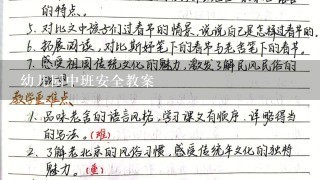 的特点。
5. 对比文中孩子们过春节的情景,说说自己是怎样过春节的。
6. 拓展阅读,对比斯好笔下的春节与老舍笔下的春节。
7. 感受祖国传统文化的魅力,激发了解民风民俗的
幼儿园中班安全教案
教学重难点
1. 品味老舍的语言风格,学习课文有顺序、详略得当
的写法。(难)
2. 了解老北京的风俗习惯,感受传统年文化的独特
魅力。(重)